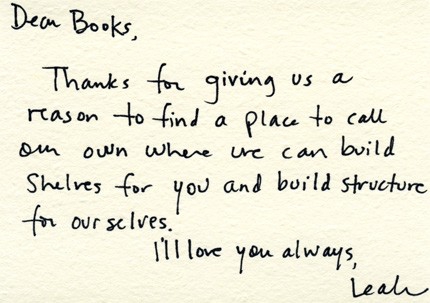 Dear Books,
Thanks for giving us a
reason to find a place to call
our own where we can build
shelves for you and build structure
for ourselves.
I'll love you always,
Leah